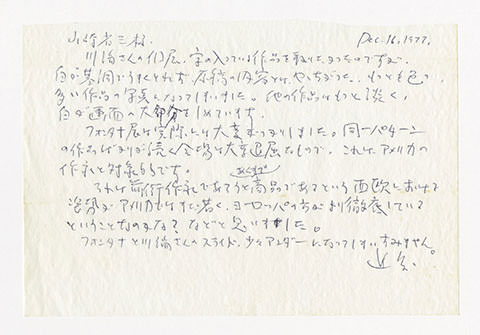 山崎省三様
Dec. 16, 1977.
川端さんの個展、字の入っている作品を取りたかったのですが、
白が基調でうまくとれず、原稿の内容とは、ちがった、もっとも色の
多い作品の写真になってしまいました。他の作品はもっと淡く、
白が画面の大部分をしめています。
フォンタナ展は実際には大変がっかりしました。同一パターン
の作品ばかりが続く会場は大変退屈なもので、これはアメリカの
作家と対象的です。
それは前衛作家であろうと商品であるという西欧における
姿勢がアメリカ ヨーロッパの方が 徹底している
ということなのかな？などと思いました。
フォンタナと川端さんのスライド、少々アンダーになってしまいすみません。